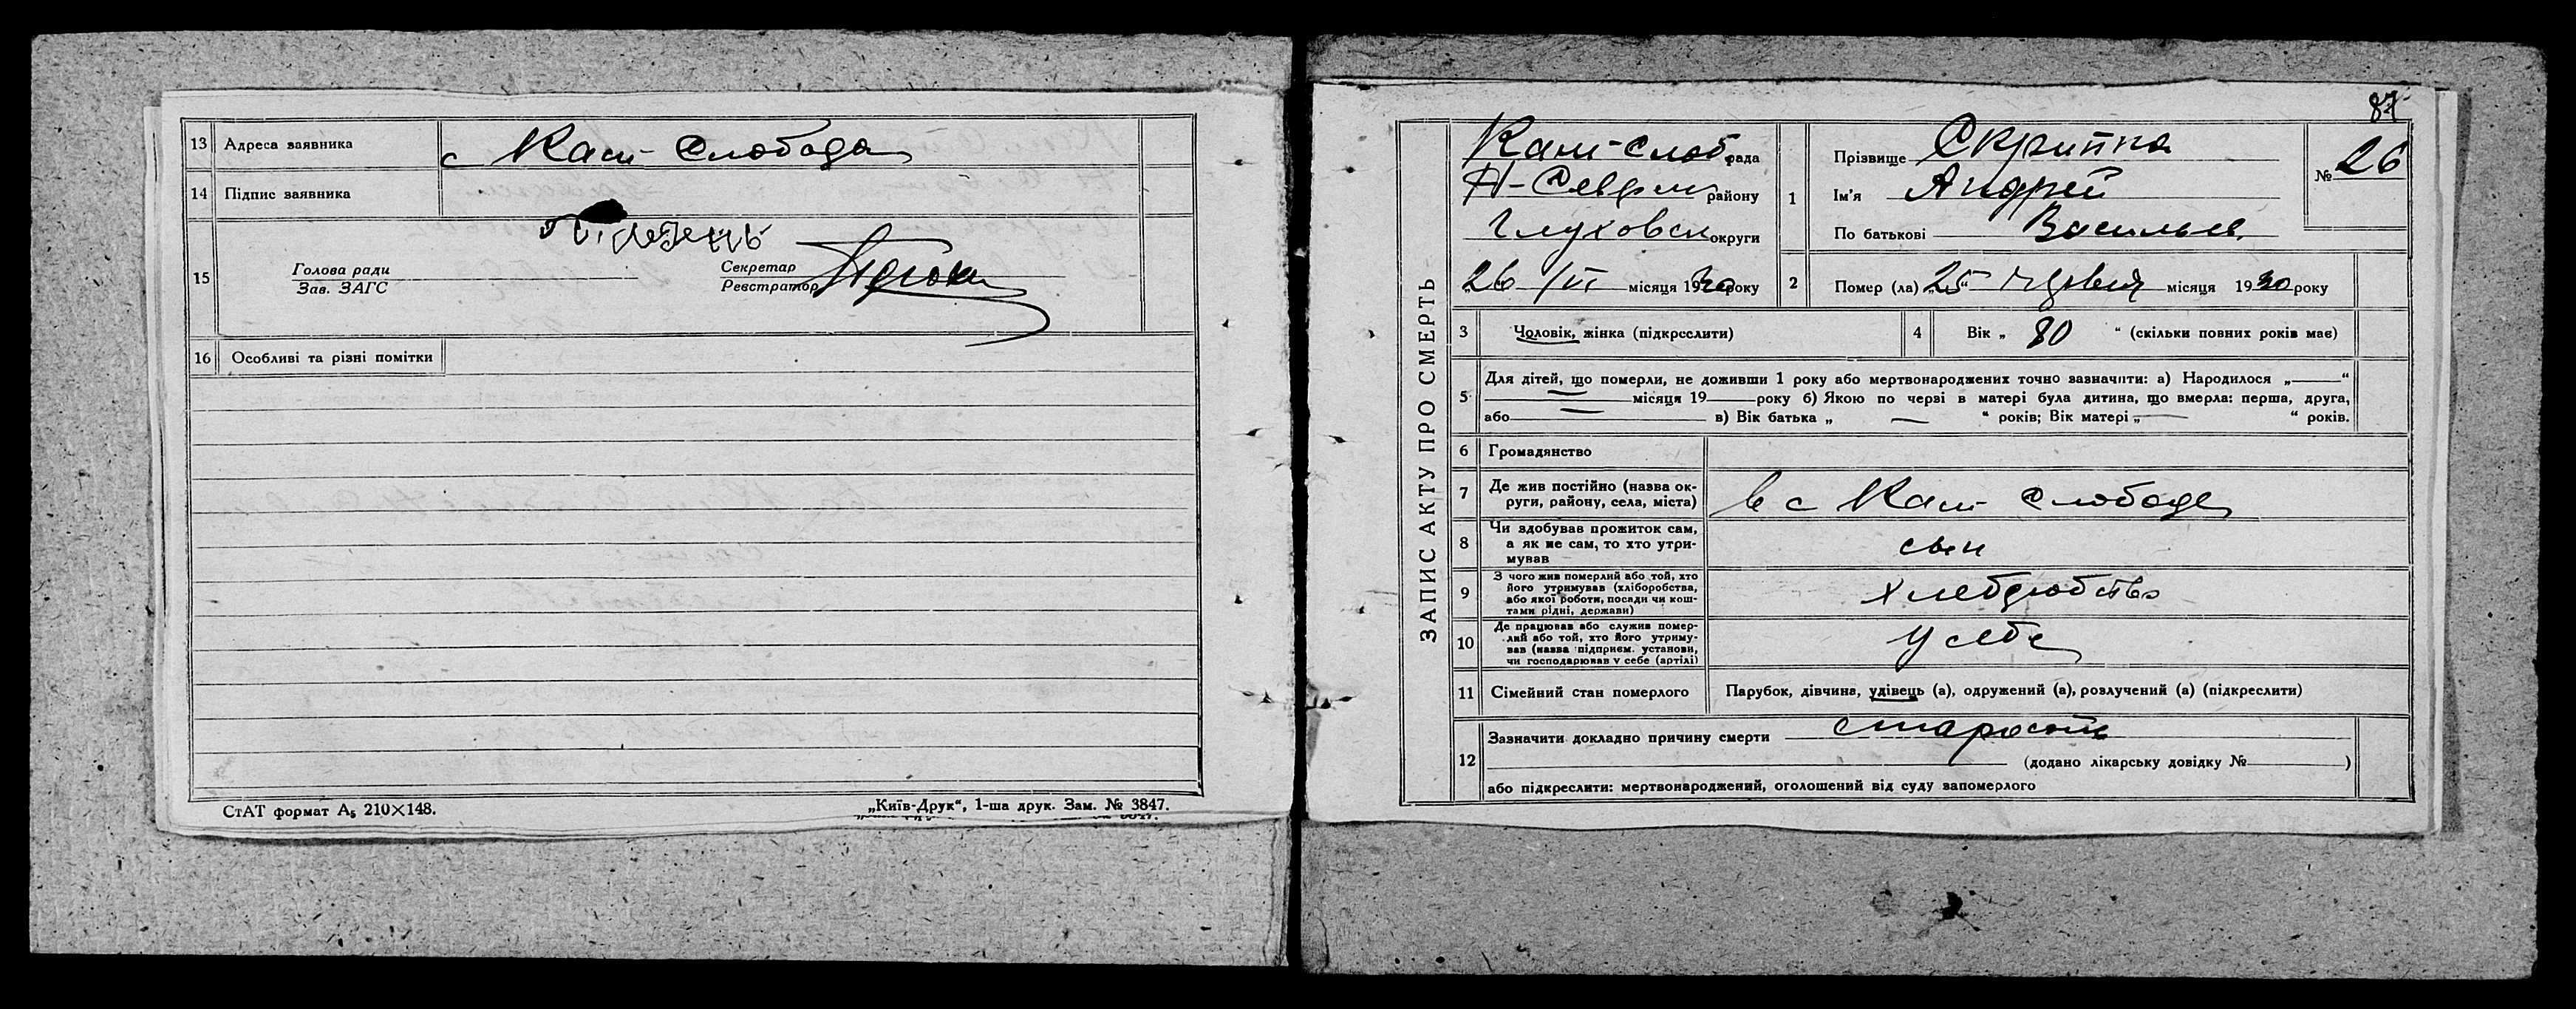 13 Адреса заявника с Кам Слобода
14 Підпис заявника
15
Голова ради
Зав. ЗАГС
Секретар
Реєстратор
16 Особливі та різні помітки
СтАТ формат А₅ 210×148.
„Київ-Друк“, 1-ша друк. Зам. № 3847.
87
ЗАПИС АКТУ ПРО СМЕРТЬ
Кам-Слоб рада
Н-Северск району
Глуховск округи
„26“ /VI місяця 1930 року
1 Прізвище Скрипка
Ім'я Андрей
По батькові Васильев.
№ 26
2 Помер (ла) „25“ червня місяця 1930 року
3 Чоловік, жінка (підкреслити)
4 Вік „ 80 “ (скільки повних років має)
5 Для дітей, що померли, не доживши 1 року або мертвонароджених точно зазначити: а) Народилося „—“
— місяця 19— року б) Якою по черзі в матері була дитина, що вмерла: перша, друга,
або — в) Вік батька „ — “ років; Вік матері „ — “ років.
6 Громадянство
7 Де жив постійно (назва ок-
руги, району, села, міста) в с Кам Слободе
8 Чи здобував прожиток сам,
а як не сам, то хто утри-
мував сын
9 З чого жив померлий або той, хто
його утримував (хліборобства,
або якої роботи, посади чи кош-
тами рідні, держави) хлебробство
10 Де працював або служив помер-
лий або той, хто його утриму-
вав (назва підприєм. установи,
чи господарював у себе (артілі) У себе
11 Сімейний стан померлого Парубок, дівчина, удівець (а), одружений (а), розлучений (а) (підкреслити)
12 Зазначити докладно причину смерти старость
(додано лікарську довідку № )
або підкреслити: мертвонароджений, оголошений від суду запомерлого